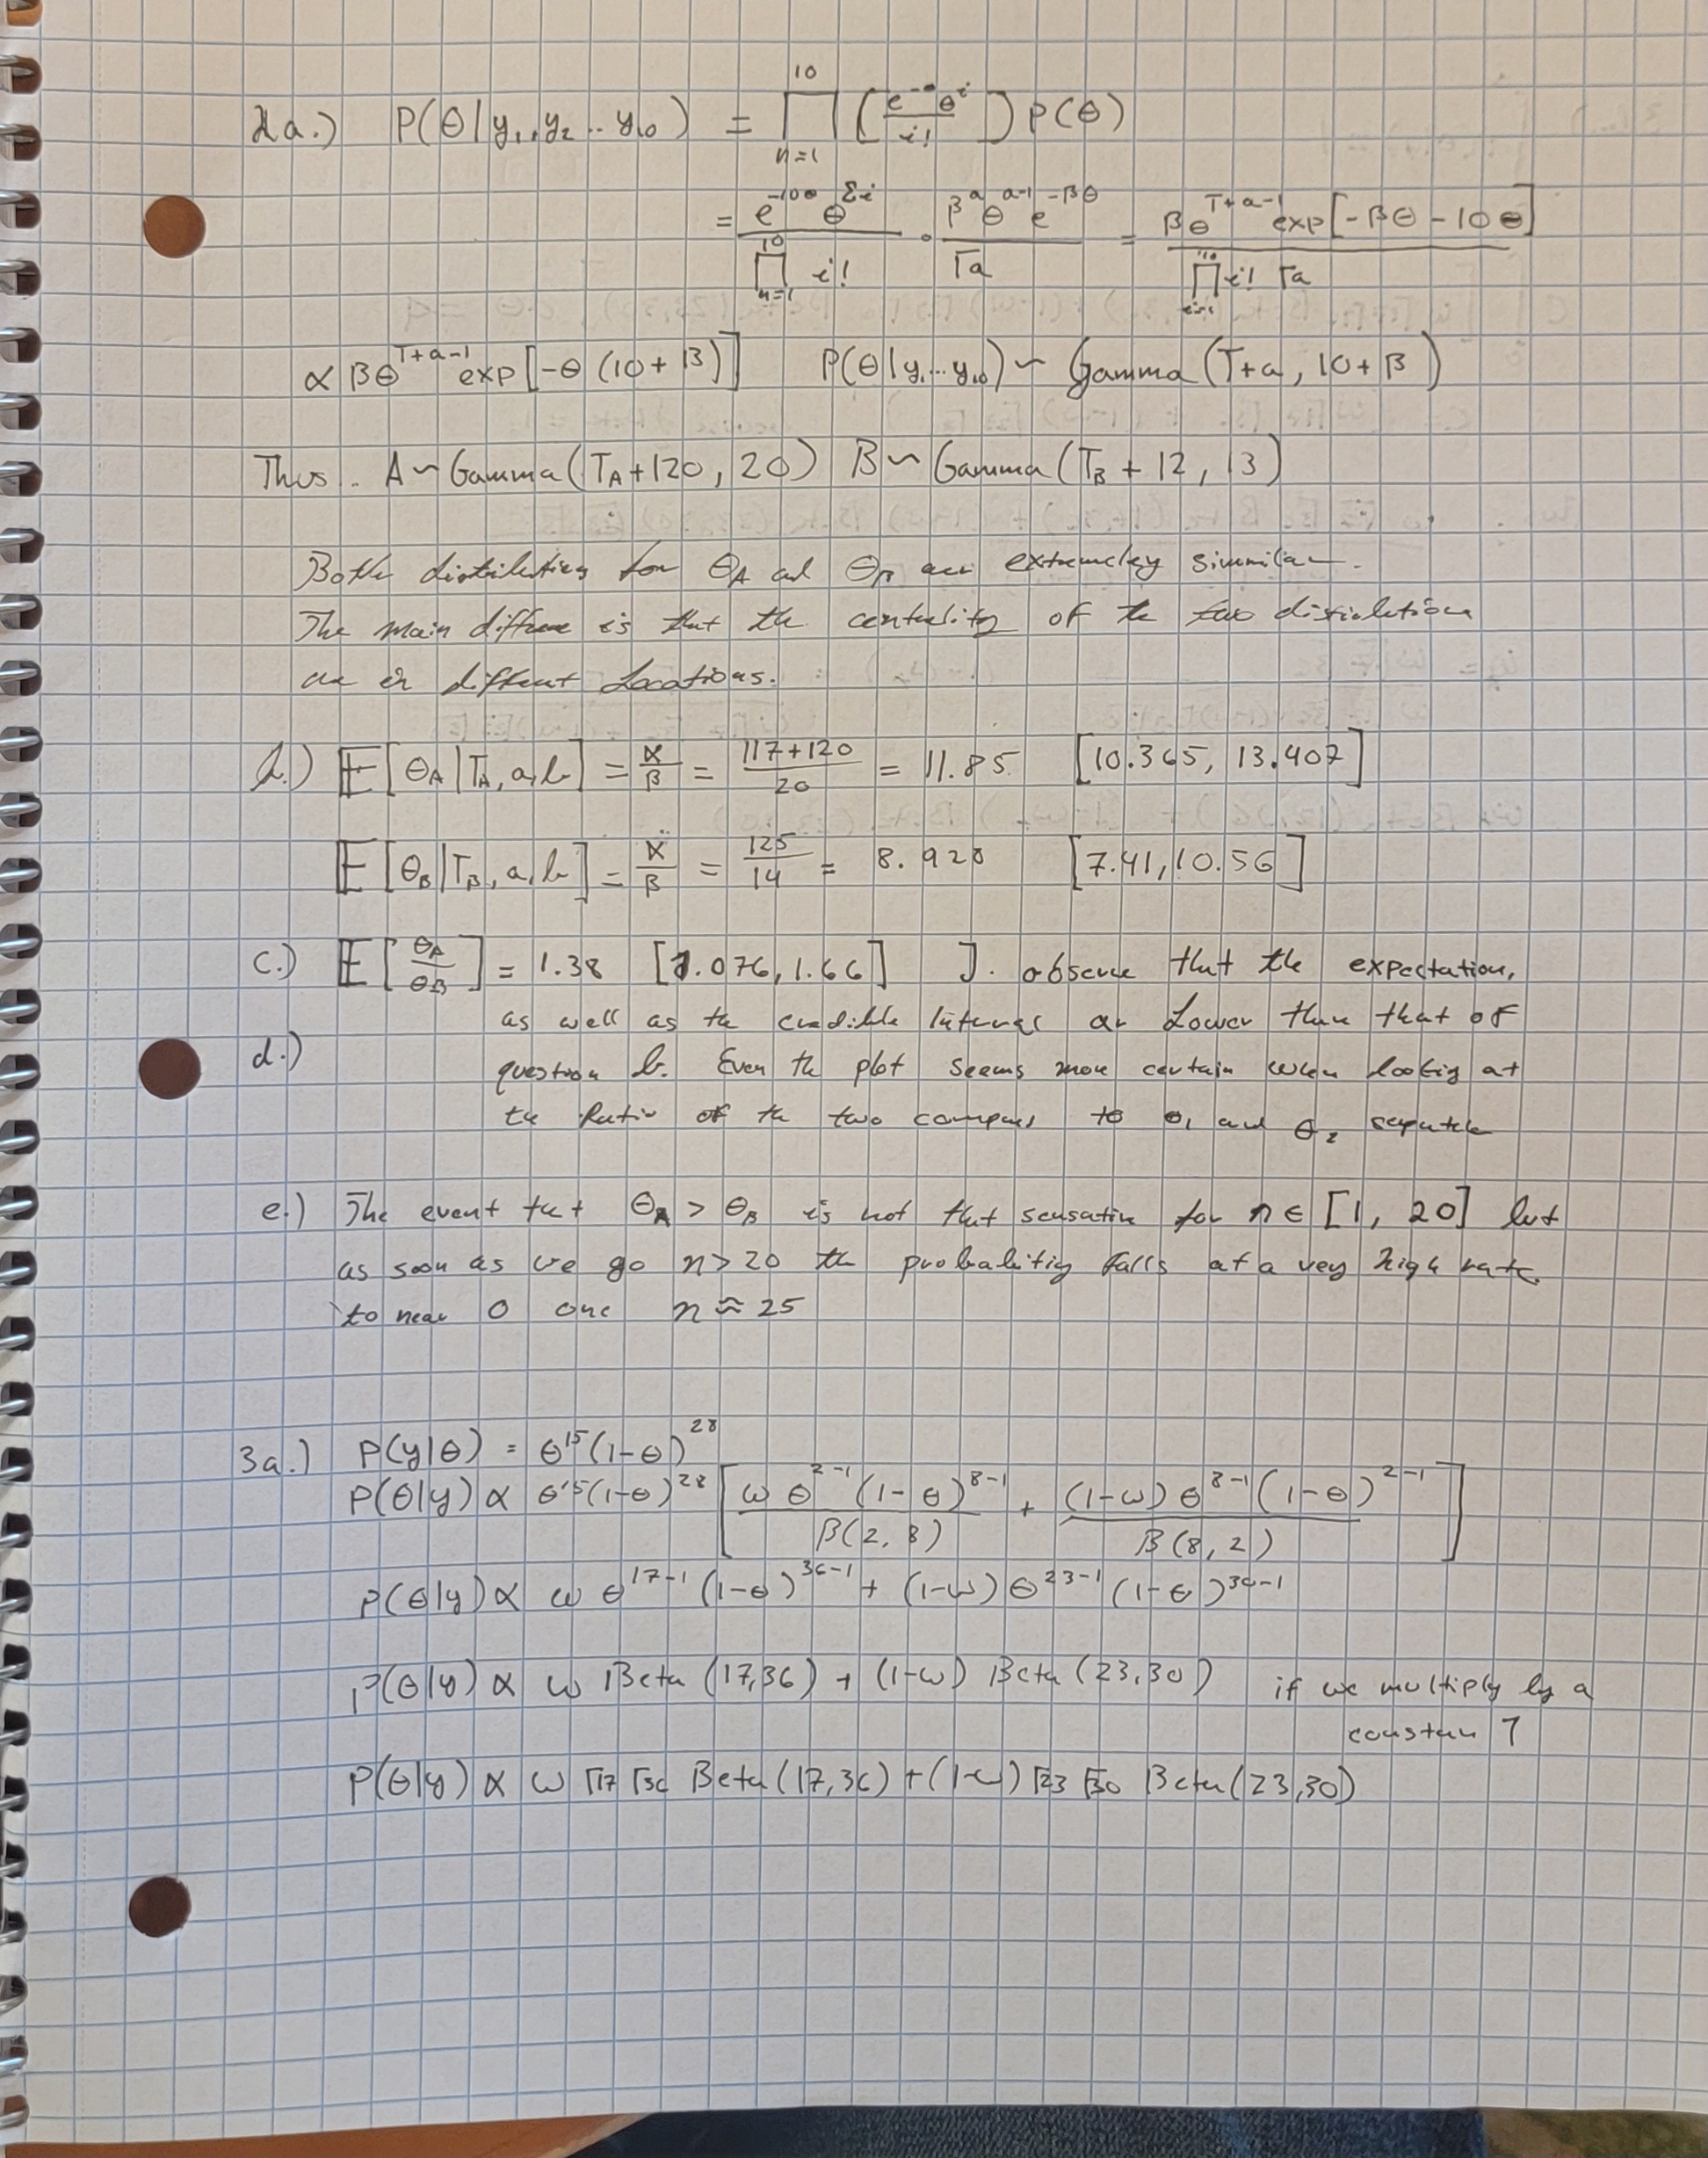 2a.) P(θ|y₁, y₂ .. y₁₀) = ∏_{n=1}^{10} [e^{-θ} θ^i / i!] P(θ)
= e^{-10θ} θ^{Σi} / ∏_{n=1}^{10} i! · β^a θ^{a-1} e^{-βθ} / Γa = βθ^{T+a-1} exp[-βθ - 10θ] / ∏_{i=1}^{10} i! Γa
∝ βθ^{T+a-1} exp[-θ (10+β)] P(θ|y₁...y₁₀) ~ Gamma(T+a, 10+β)
Thus.. A ~ Gamma(T_A+120, 20) B ~ Gamma(T_B + 12, 13)
Both distributions for θ_A ad θ_B are extremeley simmilar.
The main diffrence is that the centrality of the two distributions
are in different Locations.
b.) E[θ_A|T_A, a, b] = α/β = 117+120/20 = 11.85 [10.365, 13.407]
E[θ_B|T_B, a, b] = α/β = 125/14 = 8.928 [7.41, 10.56]
c.) E[θ_A/θ_B] = 1.38 [1.076, 1.66] I. observe that the expectation,
as well as the credible Interval are Lower than that of
d.) question b. Even the plot seems more certain when lookig at
the Ratio of the two compared to θ₁ and θ₂ seperately
e.) The event that θ_A > θ_B is not that sensative for n ∈ [1, 20] but
as soon as we go n > 20 the probabalitiy falls at a very high rate.
to near 0 once n ≈ 25
3a.) P(y|θ) = θ^{15}(1-θ)^{28}
P(θ|y) ∝ θ^{15}(1-θ)^{28} [ω θ^{2-1} (1-θ)^{8-1} / β(2, 8) + (1-ω) θ^{8-1} (1-θ)^{2-1} / β(8, 2)]
P(θ|y) ∝ ω θ^{17-1} (1-θ)^{36-1} + (1-ω) θ^{23-1} (1-θ)^{30-1}
P(θ|y) ∝ ω Beta (17,36) + (1-ω) Beta (23,30) if we multiply by a
constan 7
P(θ|y) ∝ ω Γ17 Γ36 Beta(17,36) + (1-ω) Γ23 Γ30 Beta(23,30)